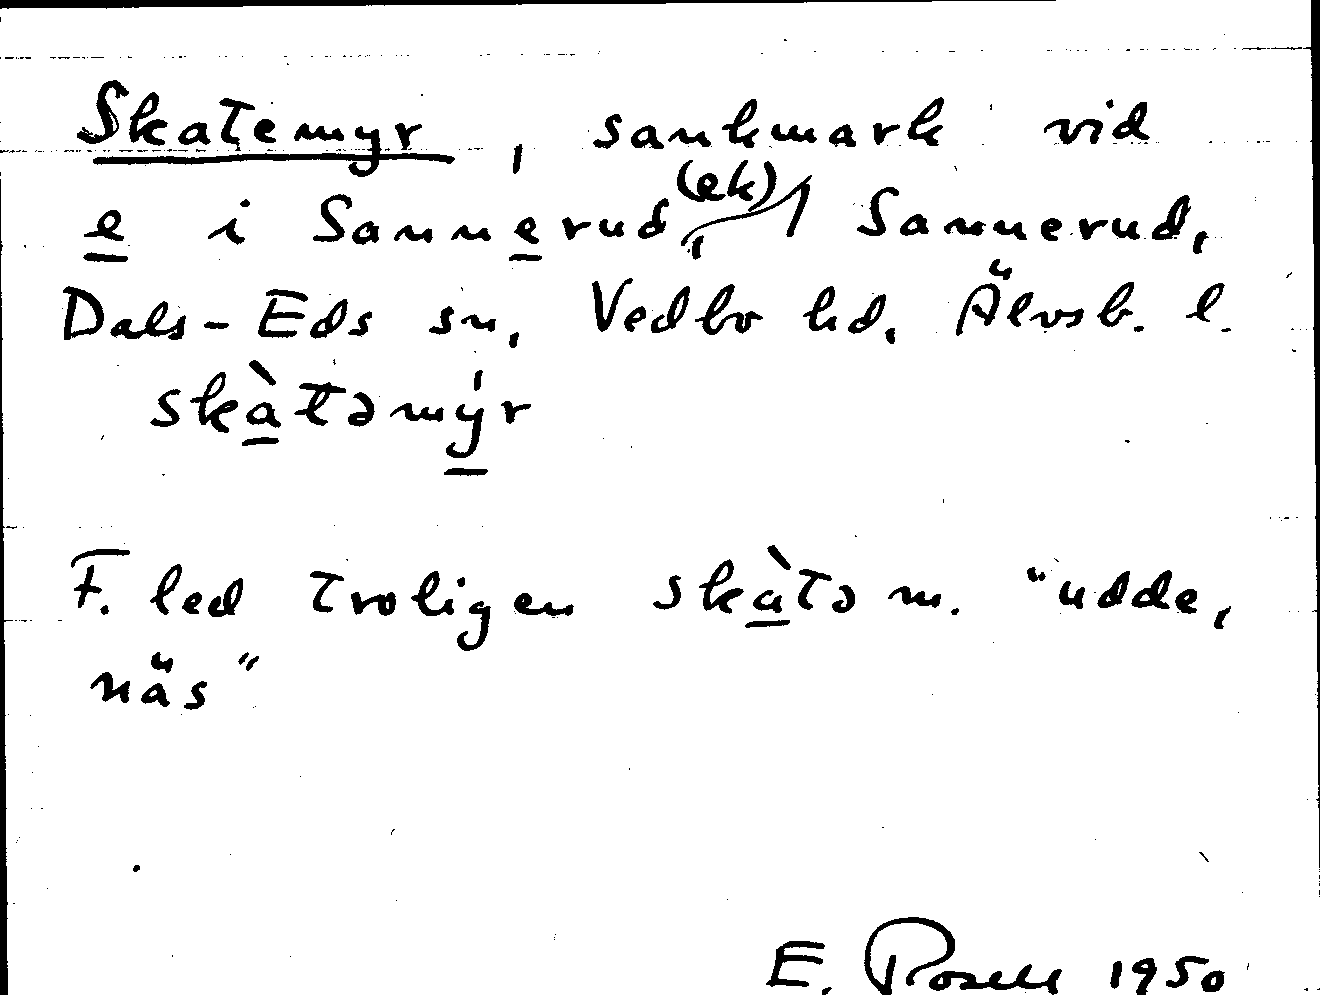 Skatemyr, sankmark vid
e i Sannerud, (ek) Sannerud,
Dals-Eds sn, Vedbo hd. Älvsb. l.
skàtəmýr
F. led troligen skàtə m. "udde,
näs"
E. Rosell 1950